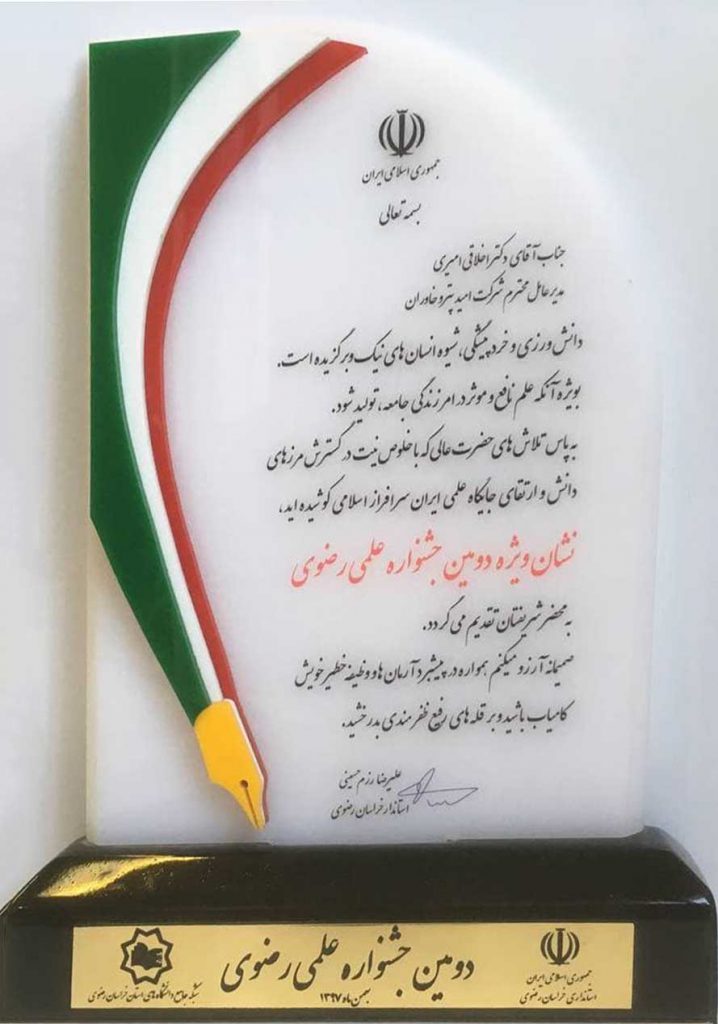 جمهوری اسلامی ایران
بسمه تعالی
جناب آقای دکتر اخلاقی امیری
مدیرعامل محترم شرکت امید پترو خاوران
دانش ورزی و خردپیشگی، شیوه انسان های نیک و برگزیده است.
بویژه آنکه علم نافع و موثر در امر زندگی جامعه، تولید شود.
به پاس تلاش های حضرت عالی که با خلوص نیت در گسترش مرزهای
دانش و ارتقای جایگاه علمی ایران سرافراز اسلامی کوشیده اید،
نشان ویژه دومین جشنواره علمی رضوی
به محضر شریفتان تقدیم می گردد.
صمیمانه آرزو میکنم همواره در پیشبرد آرمان ها و وظیفه خطیر خویش
کامیاب باشید و بر قله های رفیع ظفرمندی بدرخشید.
علیرضا رزم حسینی
استاندار خراسان رضوی
جمهوری اسلامی ایران
استانداری خراسان رضوی
دومین جشنواره علمی رضوی
بهمن ماه ۱۳۹۷
شبکه جامع دانشگاه های استان خراسان رضوی